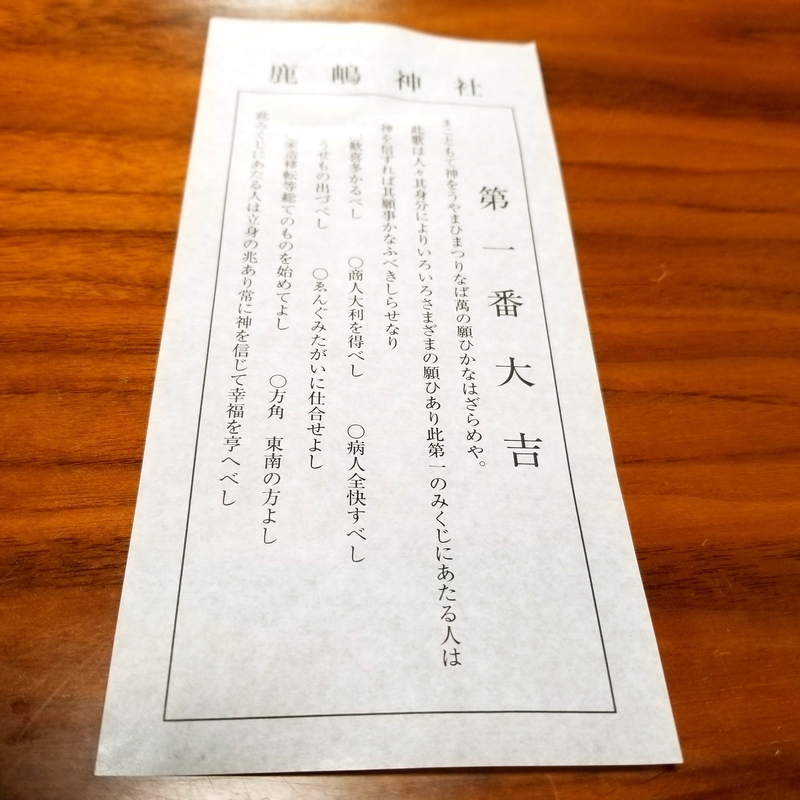 鹿嶋神社
第一番大吉
まこともて神をうやまひまつりなば萬の願ひかなはざらめや。
此歌は人々其身分によりいろいろさまざまの願ひあり此第一のみくじにあたる人は
神を信ずれば其願事かなふべきしらせなり
○歓喜多かるべし ○商人大利を得べし ○病人全快すべし
うせもの出づべし ○ゑんぐみたがいに仕合せよし
○家造移転等総てのものを始めてよし ○方角 東南の方よし
此みくじにあたる人は立身の兆あり常に神を信じて幸福を亨へべし